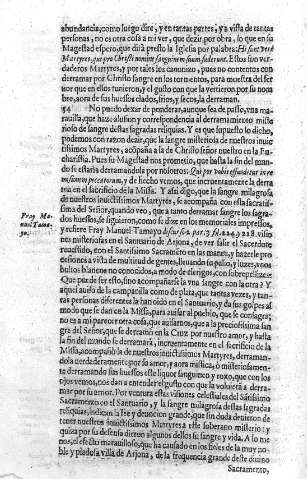 abundancia, como luego dirè, y en tantas partes, y a vista de tantas
personas, no es otra cosa a mi ver, que dezir por obra, lo que en su
Magestad espero, que dirà presto la Iglesia por palabra: Hi sunt verè
Martyres, qui pro Christi nomine sanguinem suum fuderunt. Estos son ver-
daderos Martyres, y por tales los canonizo, pues no contentos con
derramar por Christo sangre en los tormentos, para muestra del fer
vor que en ellos tunieron, y el gusto con que la vertieron por su nom
bre, aora de sus huessos elados, frios, y secos, la derraman.
54 No puedo dexar de ponderar, aunque sea de passo, vna mara
uilla, que haze alusion y correspondencia al derramamiento miste
rioso de sangre destas sagradas reliquias. Y es que supuesto lo dicho,
podemos con razon dezir, que la sangre misteriosa de nuestros inuic
tissimos Martyres, acōpaña a la de Christo señor nuestro en la Eu-
charistia. Pues su Magestad nos prometio, que hasta la fin del mun-
do se estaria derramando por nosotros: Qui pro vobis effundetur in re
missionem peccatorum, y de hecho vemos, que incruentamente la derra
ma en el sacrificio de la Missa. Y assi digo, que la sangre milagrosa
de nuestros inuictissimos Martyres, se acompaña con esta sacratis-
sima del Señor, quando veo, que a tanto derramar sangre los sagra-
dos huessos, se siguieron, como se dize en los memoriales impressos,
y refiere Fray Manuel Tamayo
Fray Ma-
nuel Tama-
yo.
nes misteriosas en el Santuario de Arjona, de ver salir el Sacerdote
reuestido, con el Santissimo Sacramento en las manos, y hazerle pro
cessiones a vista de multitud de gentes, lleuando su palio, y luzes, y en
bultos blancos no conocidos, a modo de clerigos, con sobrepellizes
Que puede ser esto, sino acompañarse la vna sangre con la otra? Y
aquel auiso de la campanilla como de plata, que tantas vezes, y tan-
tas personas diferentes la han oido en el Santuario, y da sus golpes al
modo que se dan en la Missa, para auisar al pueblo, que se consagra;
no es a mi parecer otra cosa, que auisarnos, que a la preciosissima san
gre del Señor, que se derramò en la Cruz por nuestro amor, y hasta
la fin del mundo se derramarà, incruentamente en el sacrificio de la
Missa, acompaña la de nuestros inuictissimos Martyres, derraman-
dola verdaderamente por su amor, y aora mistica, ò misteriosamen-
te derramando sus huessos este liquor sanguineo y roxo, que con los
ojos vemos, nos dan a entender el gusto con que la boluieran a derra-
mar por su amor. Por ventura estas visiones celestiales del Santissimo
Sacramento en el Santuario, y la sangre milagrosa destas sagradas
reliquias, indican la Fe y deuocion grande, que sin duda tuuieron de
tener nuestros inuictissimos Martyres a este soberano misterio: y
quiza por su defensa dieron algunos dellos su sangre y vida. A lo me
nos, el efecto marauilloso, que ha causado en los fieles de la muy no-
ble y piadosa villa de Arjona, de la frequencia grande deste diuino
Sacramento,